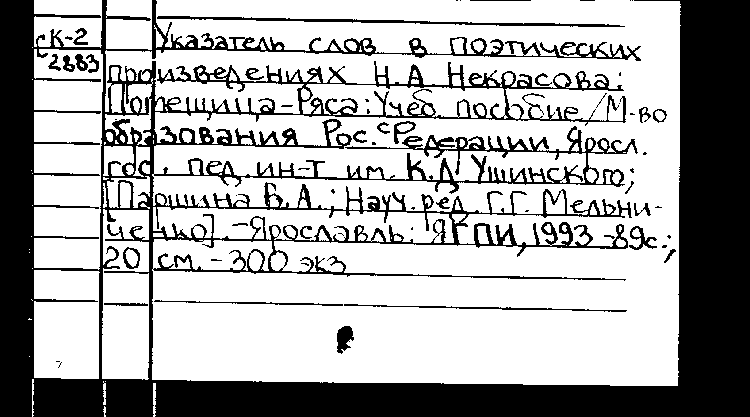 К-2
2883
Указатель слов в поэтических
произведениях Н.А Некрасова:
Помещица-Ряса: Учеб. пособие / М-во
образования Рос. Федерации, Яросл.
гос. пед. ин-т им. К.Д Ушинского;
[Паршина В.А.; Науч. ред. Г.Г. Мельни-
ченко]. - Ярославль: ЯГПИ, 1993 -89с.;
20 см. - 300 экз